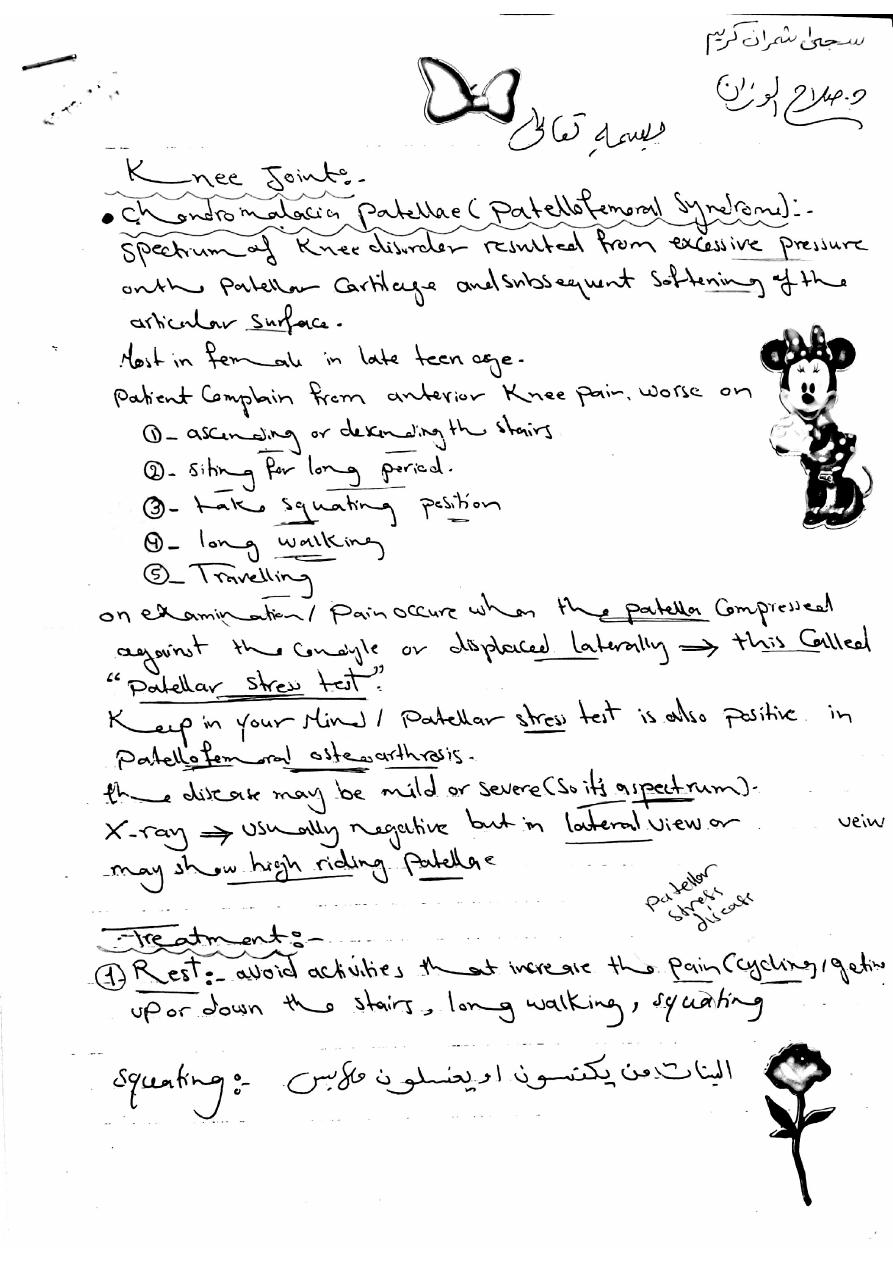 سجى شمران كريم
د. صلاح الوزان
بسمه تعالى
Knee Joint:-
• Chondromalacia patellae (patellofemoral syndrome):-
Spectrum of Knee disorder resulted from excessive pressure
on the patellar Cartilage and subssequent Softening of the
articular surface.
Most in female in late teen age.
patient Complain from anterior Knee pain, worse on
① - ascending or descending the stairs
② - siting for long period.
③ - take squating position
④ - long walking
⑤ - Travelling
on examination / pain occure when the patella Compressed
against the Condyle or displaced laterally ⇒ this Called
"patellar stress test".
Keep in your Mind / patellar stress test is also positive in
patellofemoral ostearthrosis.
the disease may be mild or severe (so it's aspectrum).
X-ray ⇒ usually negative but in lateral view or veiw
may show high riding patellae
patellar
stress
disease
Treatment:-
① Rest:- avoid activities that increase the pain (cycling, geting
up or down the stairs, long walking, squating
squating:- البنات من يكنسون او يغسلون ملابس